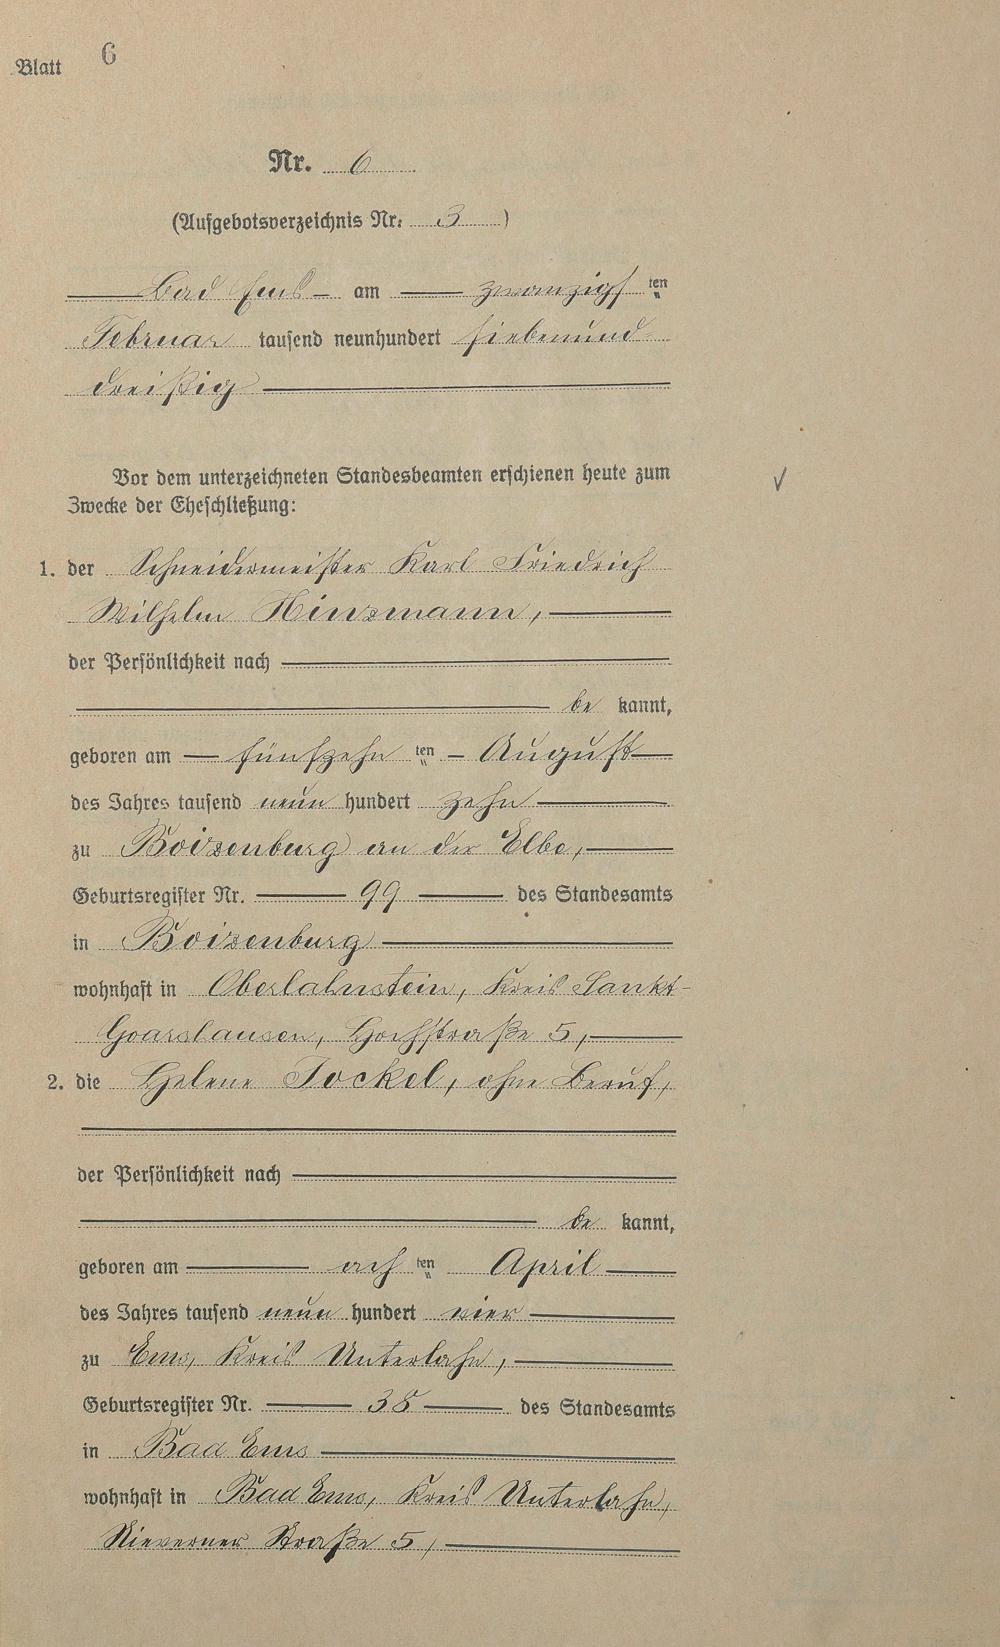 Blatt 6
Nr. 6
(Aufgebotsverzeichnis Nr. 3)
Bad Ems am zwanzigsten
Februar tausend neunhundert siebenund
dreißig
Vor dem unterzeichneten Standesbeamten erschienen heute zum
Zwecke der Eheschließung:
1. der Schneidermeister Karl Friedrich
Wilhelm Hinzmann,
der Persönlichkeit nach
be kannt,
geboren am fünfzehn ten August
des Jahres tausend neun hundert zehn
zu Boizenburg an der Elbe,
Geburtsregister Nr. 99 des Standesamts
in Boizenburg
wohnhaft in Oberlahnstein, Kreis Sankt-
Goarshausen, Hochstraße 5,
2. die Helene Jockel, ohne Beruf,
der Persönlichkeit nach
be kannt,
geboren am ach ten April
des Jahres tausend neun hundert vier
zu Ems, Kreis Unterlahn,
Geburtsregister Nr. 38 des Standesamts
in Bad Ems
wohnhaft in Bad Ems, Kreis Unterlahn,
Nieverner Straße 5,